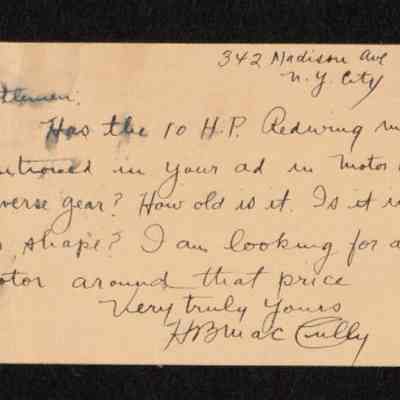 342 Madison Ave
N.Y. City
ntlemen:
Has the 10 H.P. Redwing m
ntioned in your ad in Motor
verse gear? How old is it. Is it i
shape? I am looking for a
otor around that price
Very truly yours
HB MacCully